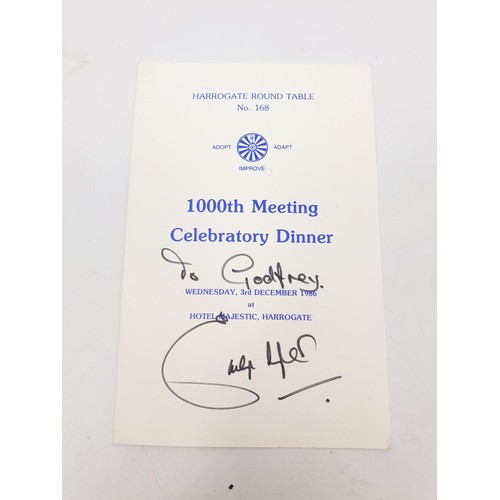 HARROGATE ROUND TABLE
No. 168
ADOPT ADAPT
IMPROVE
1000th Meeting
Celebratory Dinner
To Godfrey.
WEDNESDAY, 3rd DECEMBER 1986
at
HOTEL MAJESTIC, HARROGATE